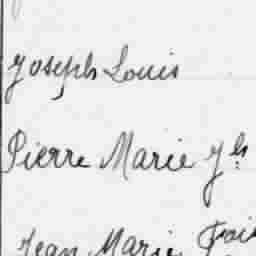 Joseph Louis
Pierre Marie Jh
Jean Marie